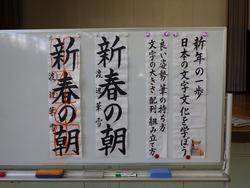 新年の一歩
日本の文字文化を学ぼう
良い姿勢 筆の持ち方
文字の大きさ 配列 組み立て方
新春の朝
新春の朝